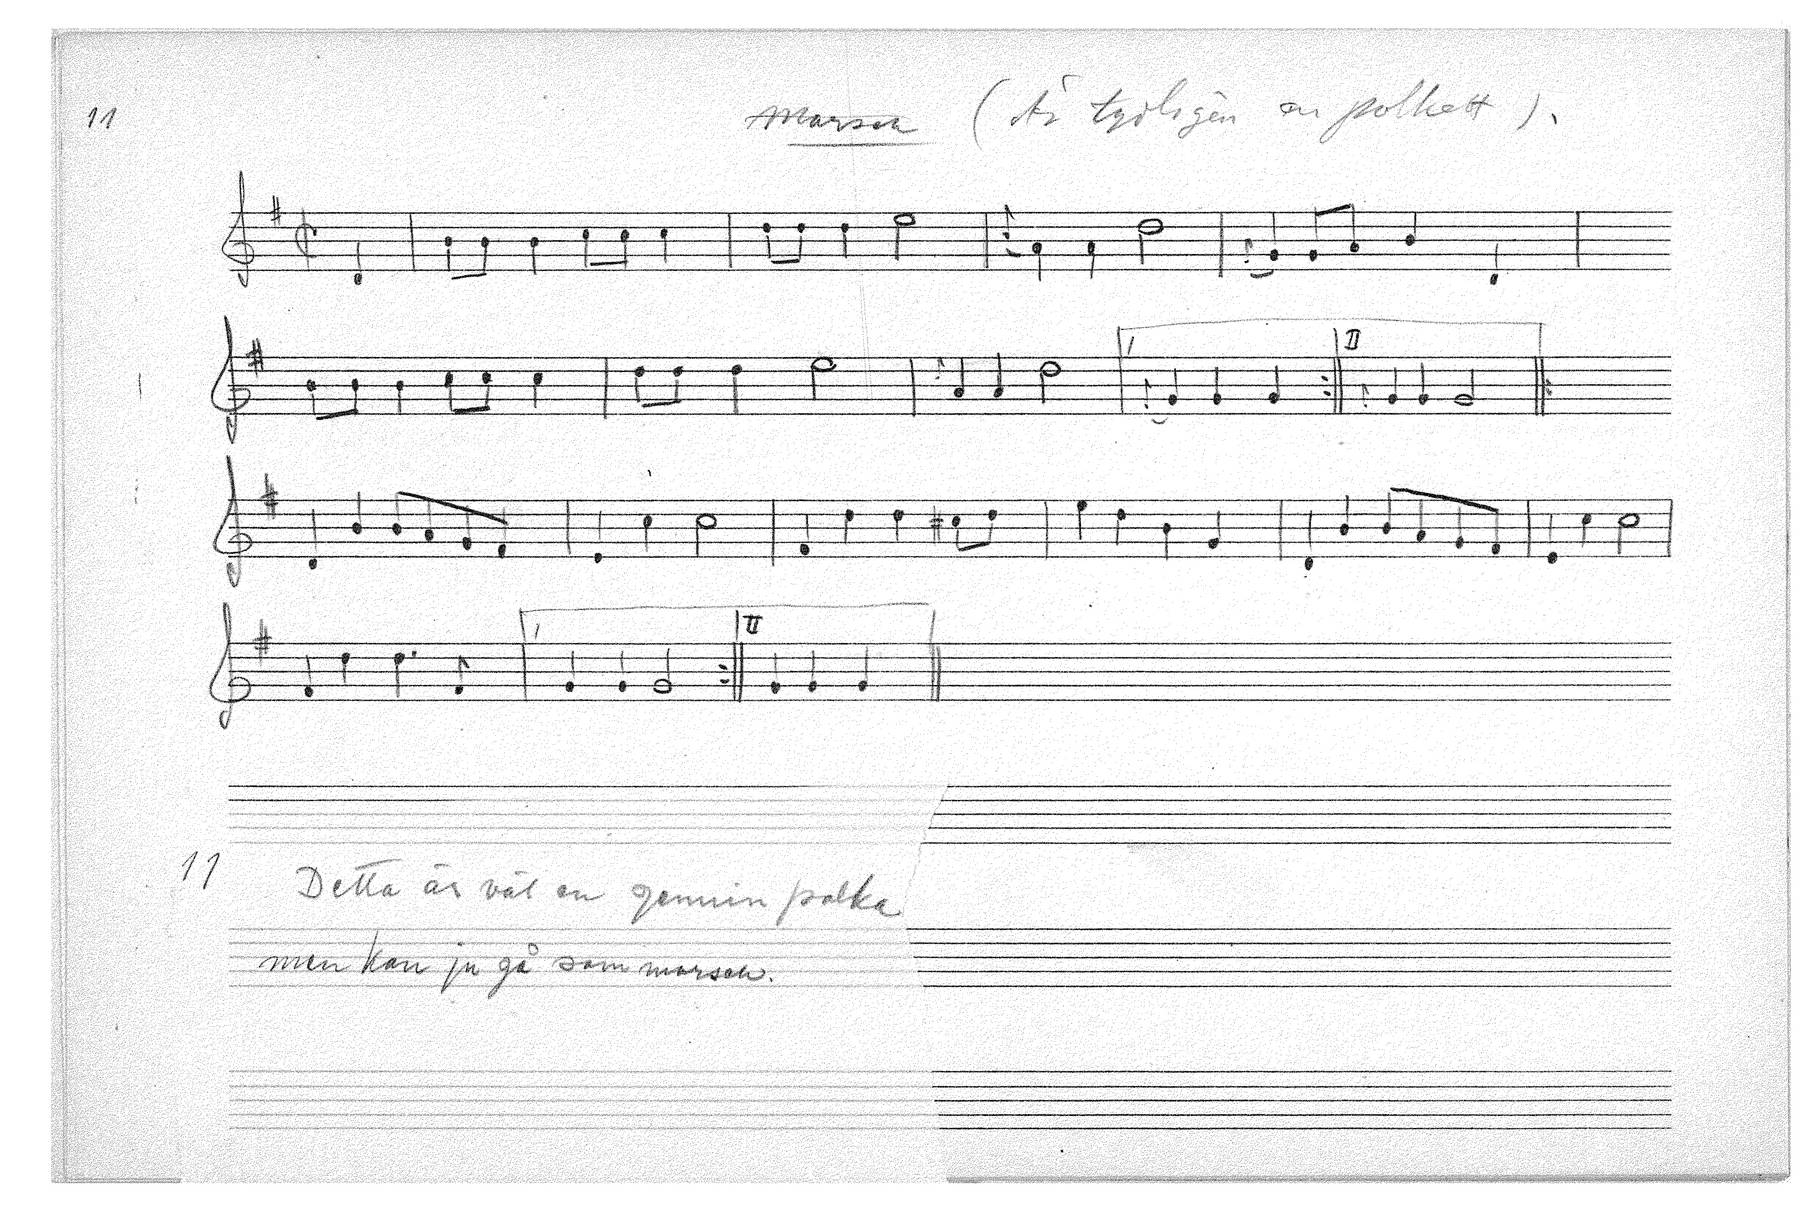 11
Marsch (Är tydligen en polkett).
I
II
I
II
11
Detta är väl en genuin polka
men kan ju gå som marsch.